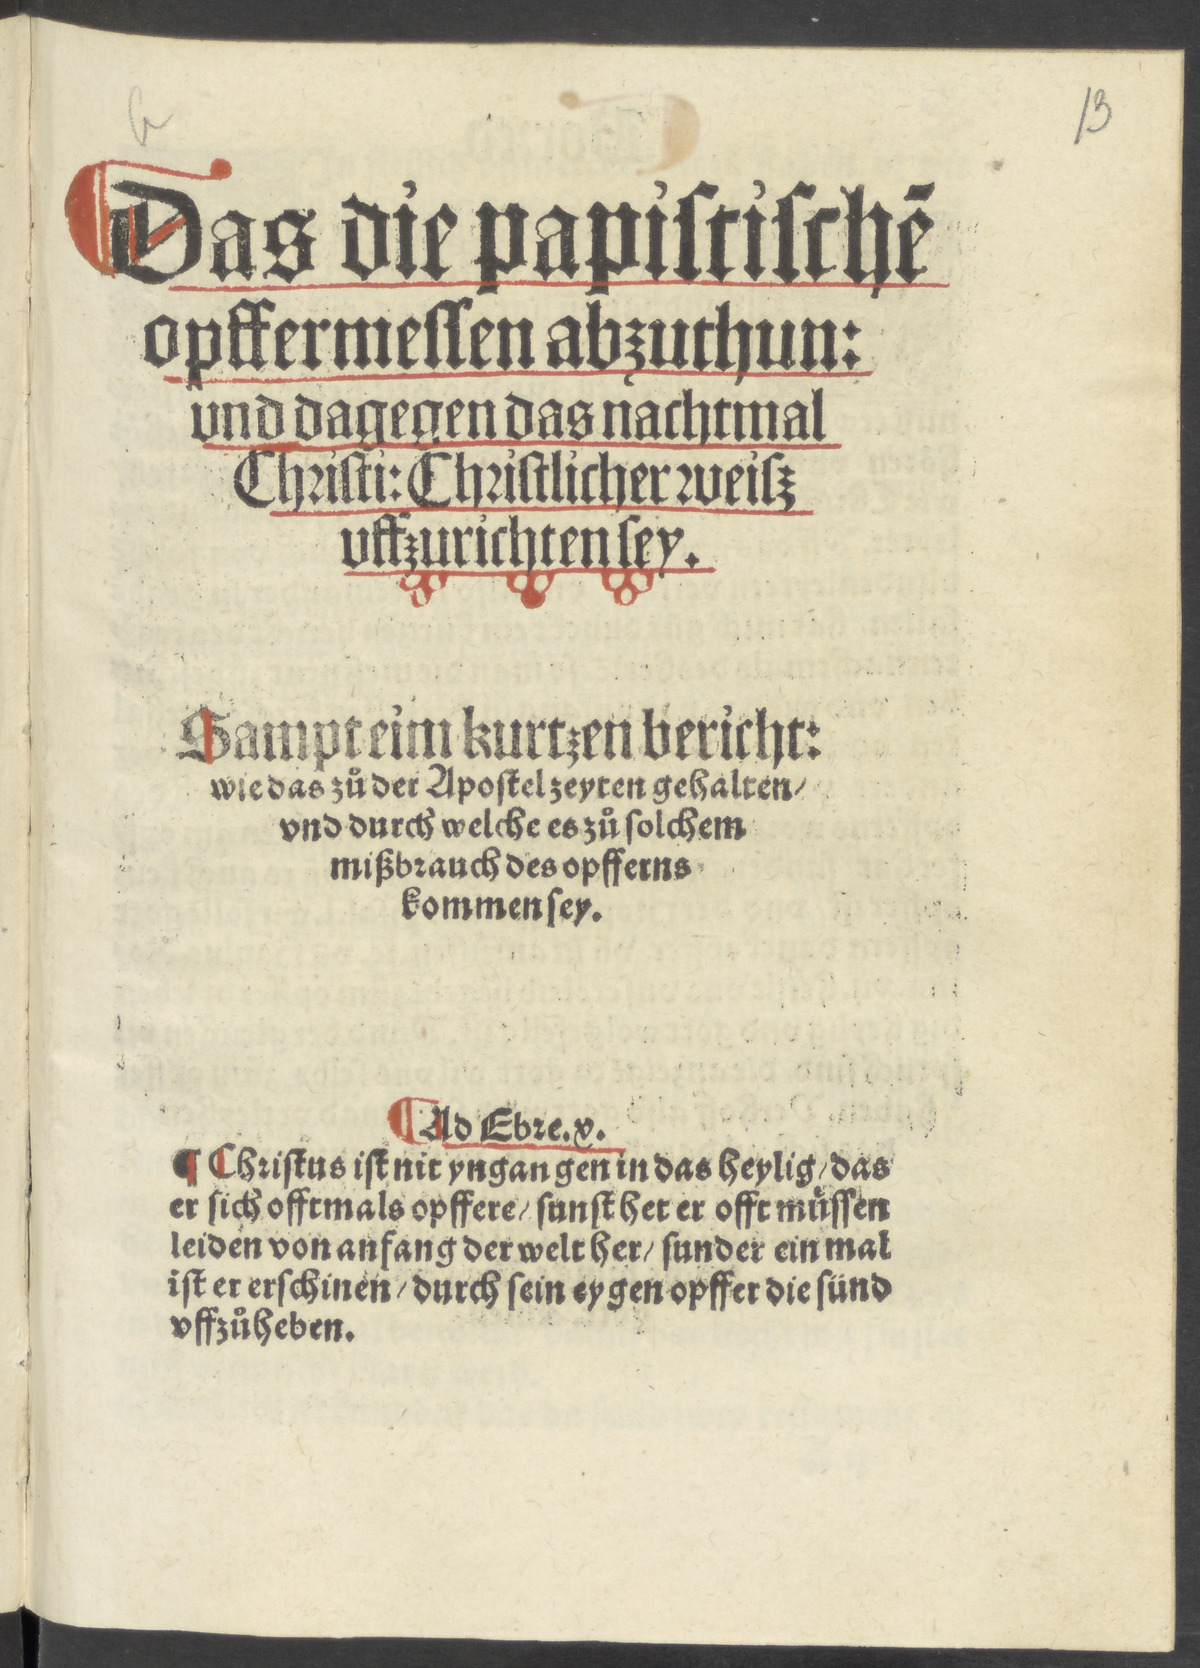 13
Das die papistischē
opffermessen abzuthun:
und dagegen das nachtmal
Christi: Christlicher weisz
uffzurichten sey.
Sampt eim kurtzen bericht:
wie das zů der Apostel zeyten gehalten/
vnd durch welche es zů solchem
mißbrauch des opfferns
kommen sey.
Ad Ebre. v.
¶ Christus ist nit yngangen in das heylig/ das
er sich offtmals opffere/ sunst het er offt müssen
leiden von anfang der welt her/ sunder ein mal
ist er erschinen/ durch sein eygen opffer die sünd
vffzůheben.